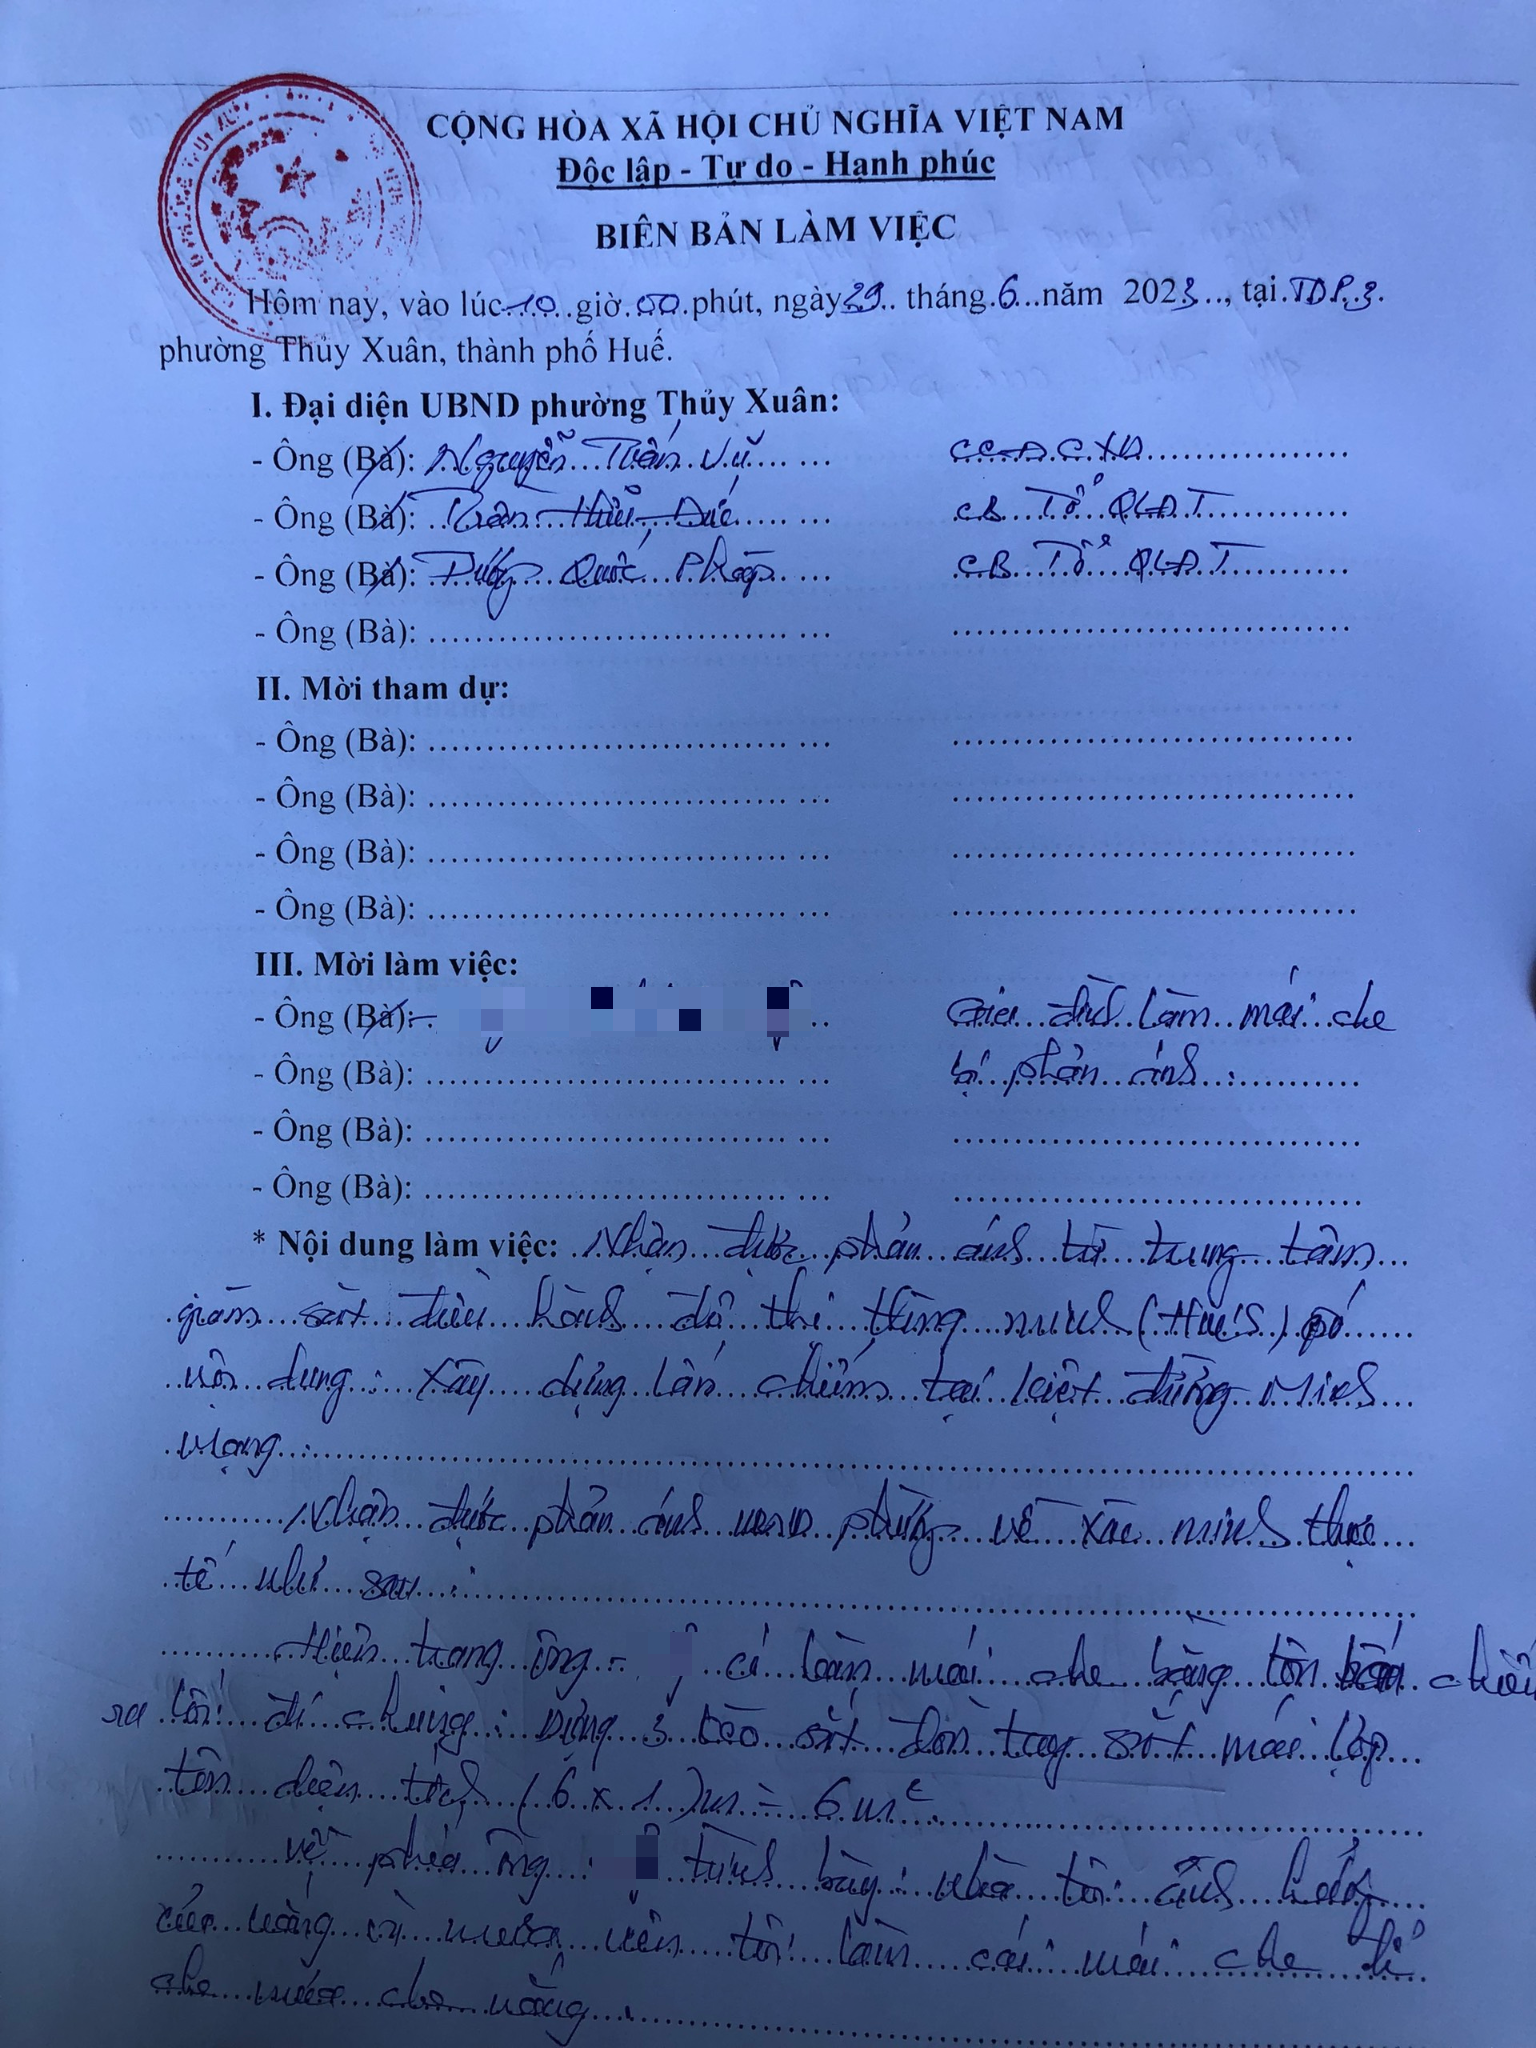 CỘNG HÒA XÃ HỘI CHỦ NGHĨA VIỆT NAM
Độc lập - Tự do - Hạnh phúc
BIÊN BẢN LÀM VIỆC
Hôm nay, vào lúc 10 giờ 00 phút, ngày 29 tháng 6 năm 2023, tại TDP 3
phường Thủy Xuân, thành phố Huế.
I. Đại diện UBND phường Thủy Xuân:
- Ông (Bà): Nguyễn Tuấn Vũ CC-ĐC-XD
- Ông (Bà): Trần Hữu Đức CB Tổ QLĐT
- Ông (Bà): Quốc Pháp CB Tổ QLĐT
- Ông (Bà):
II. Mời tham dự:
- Ông (Bà):
- Ông (Bà):
- Ông (Bà):
- Ông (Bà):
III. Mời làm việc:
- Ông (Bà): Gia đình làm mái che
- Ông (Bà): bị phản ánh.
- Ông (Bà):
- Ông (Bà):
* Nội dung làm việc: Nhận được phản ánh từ trung tâm
giám sát điều hành đô thị thông minh (HueS) có
nội dung: Xây dựng lấn chiếm tại kiệt đường Minh
Mạng.
Nhận được phản ánh UBND phường về xác minh thực
tế như sau:
Hiện trạng ông có làm mái che bằng tôn
ra lối đi chung: Dựng 3 sắt đòn tay sắt mái lợp
tôn diện tích (6 x 1)m = 6m²
Về phía ông trình bày: nhà tôi ảnh hưởng
nắng và mưa nên tôi làm cái mái che để
che mưa che nắng.